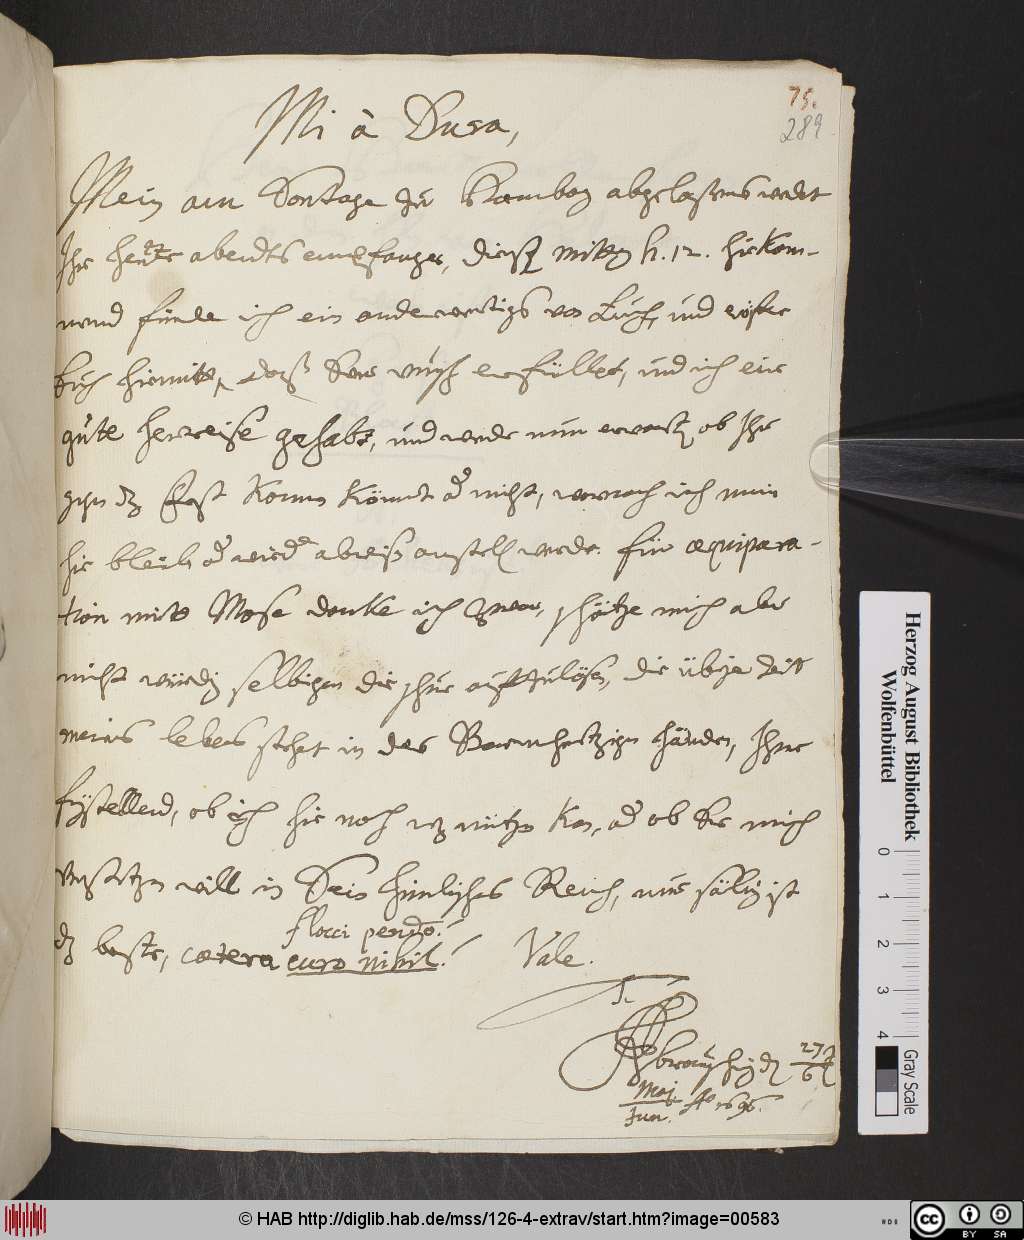 75.
289
Mi à Dura,
Mein am Sontage zu Hamburg abgelaßenes werdet
Ihr heute abendts empfangen, dieß mittag h. 12. hiekom-
mend finde ich ein anderwertigs von Euch, und
Euch hiemitt, daß Sein erfüllet, und ich eine
gute herreise gehabt, und werde nun erwarten ob Ihr
gegen das Fest komen könnet oder nicht, wornach ich mein
hie bleiben oder wieder abreisen anstellen werde. für æquipara-
tion mitt Mose danke ich zwar, schätze mich aber
nicht würdig selbigem die schue auffzulösen, die übrige Zeit
meines lebens stehet in des Barmherzigen händen, Ihme
heimstellend, ob ich hie noch nützen kan, oder ob Er mich
versetzen will in Sein himlisches Reich, nur sälig ist
das beste, cætera flocci pendo!
curo nihil! Vale.
T.
27
6
Maj.
Jun. Ao 1696.
Herzog August Bibliothek
Wolfenbüttel
0 1 2 3 4
Gray Scale
© HAB http://diglib.hab.de/mss/126-4-extrav/start.htm?image=00583
cc BY SA